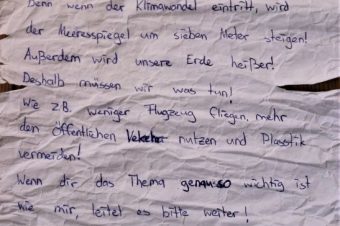 Denn wenn der Klimawandel eintritt, wird
der Meeresspiegel um sieben Meter steigen!
Außerdem wird unsere Erde heißer!
Deshalb müssen wir was tun!
Wie z.B. weniger Flugzeug fliegen, mehr
den öffentlichen Verkehr nutzen und Plastik
vermeiden!
Wenn dir das Thema genauso wichtig ist
wie mir, leitet es bitte weiter!